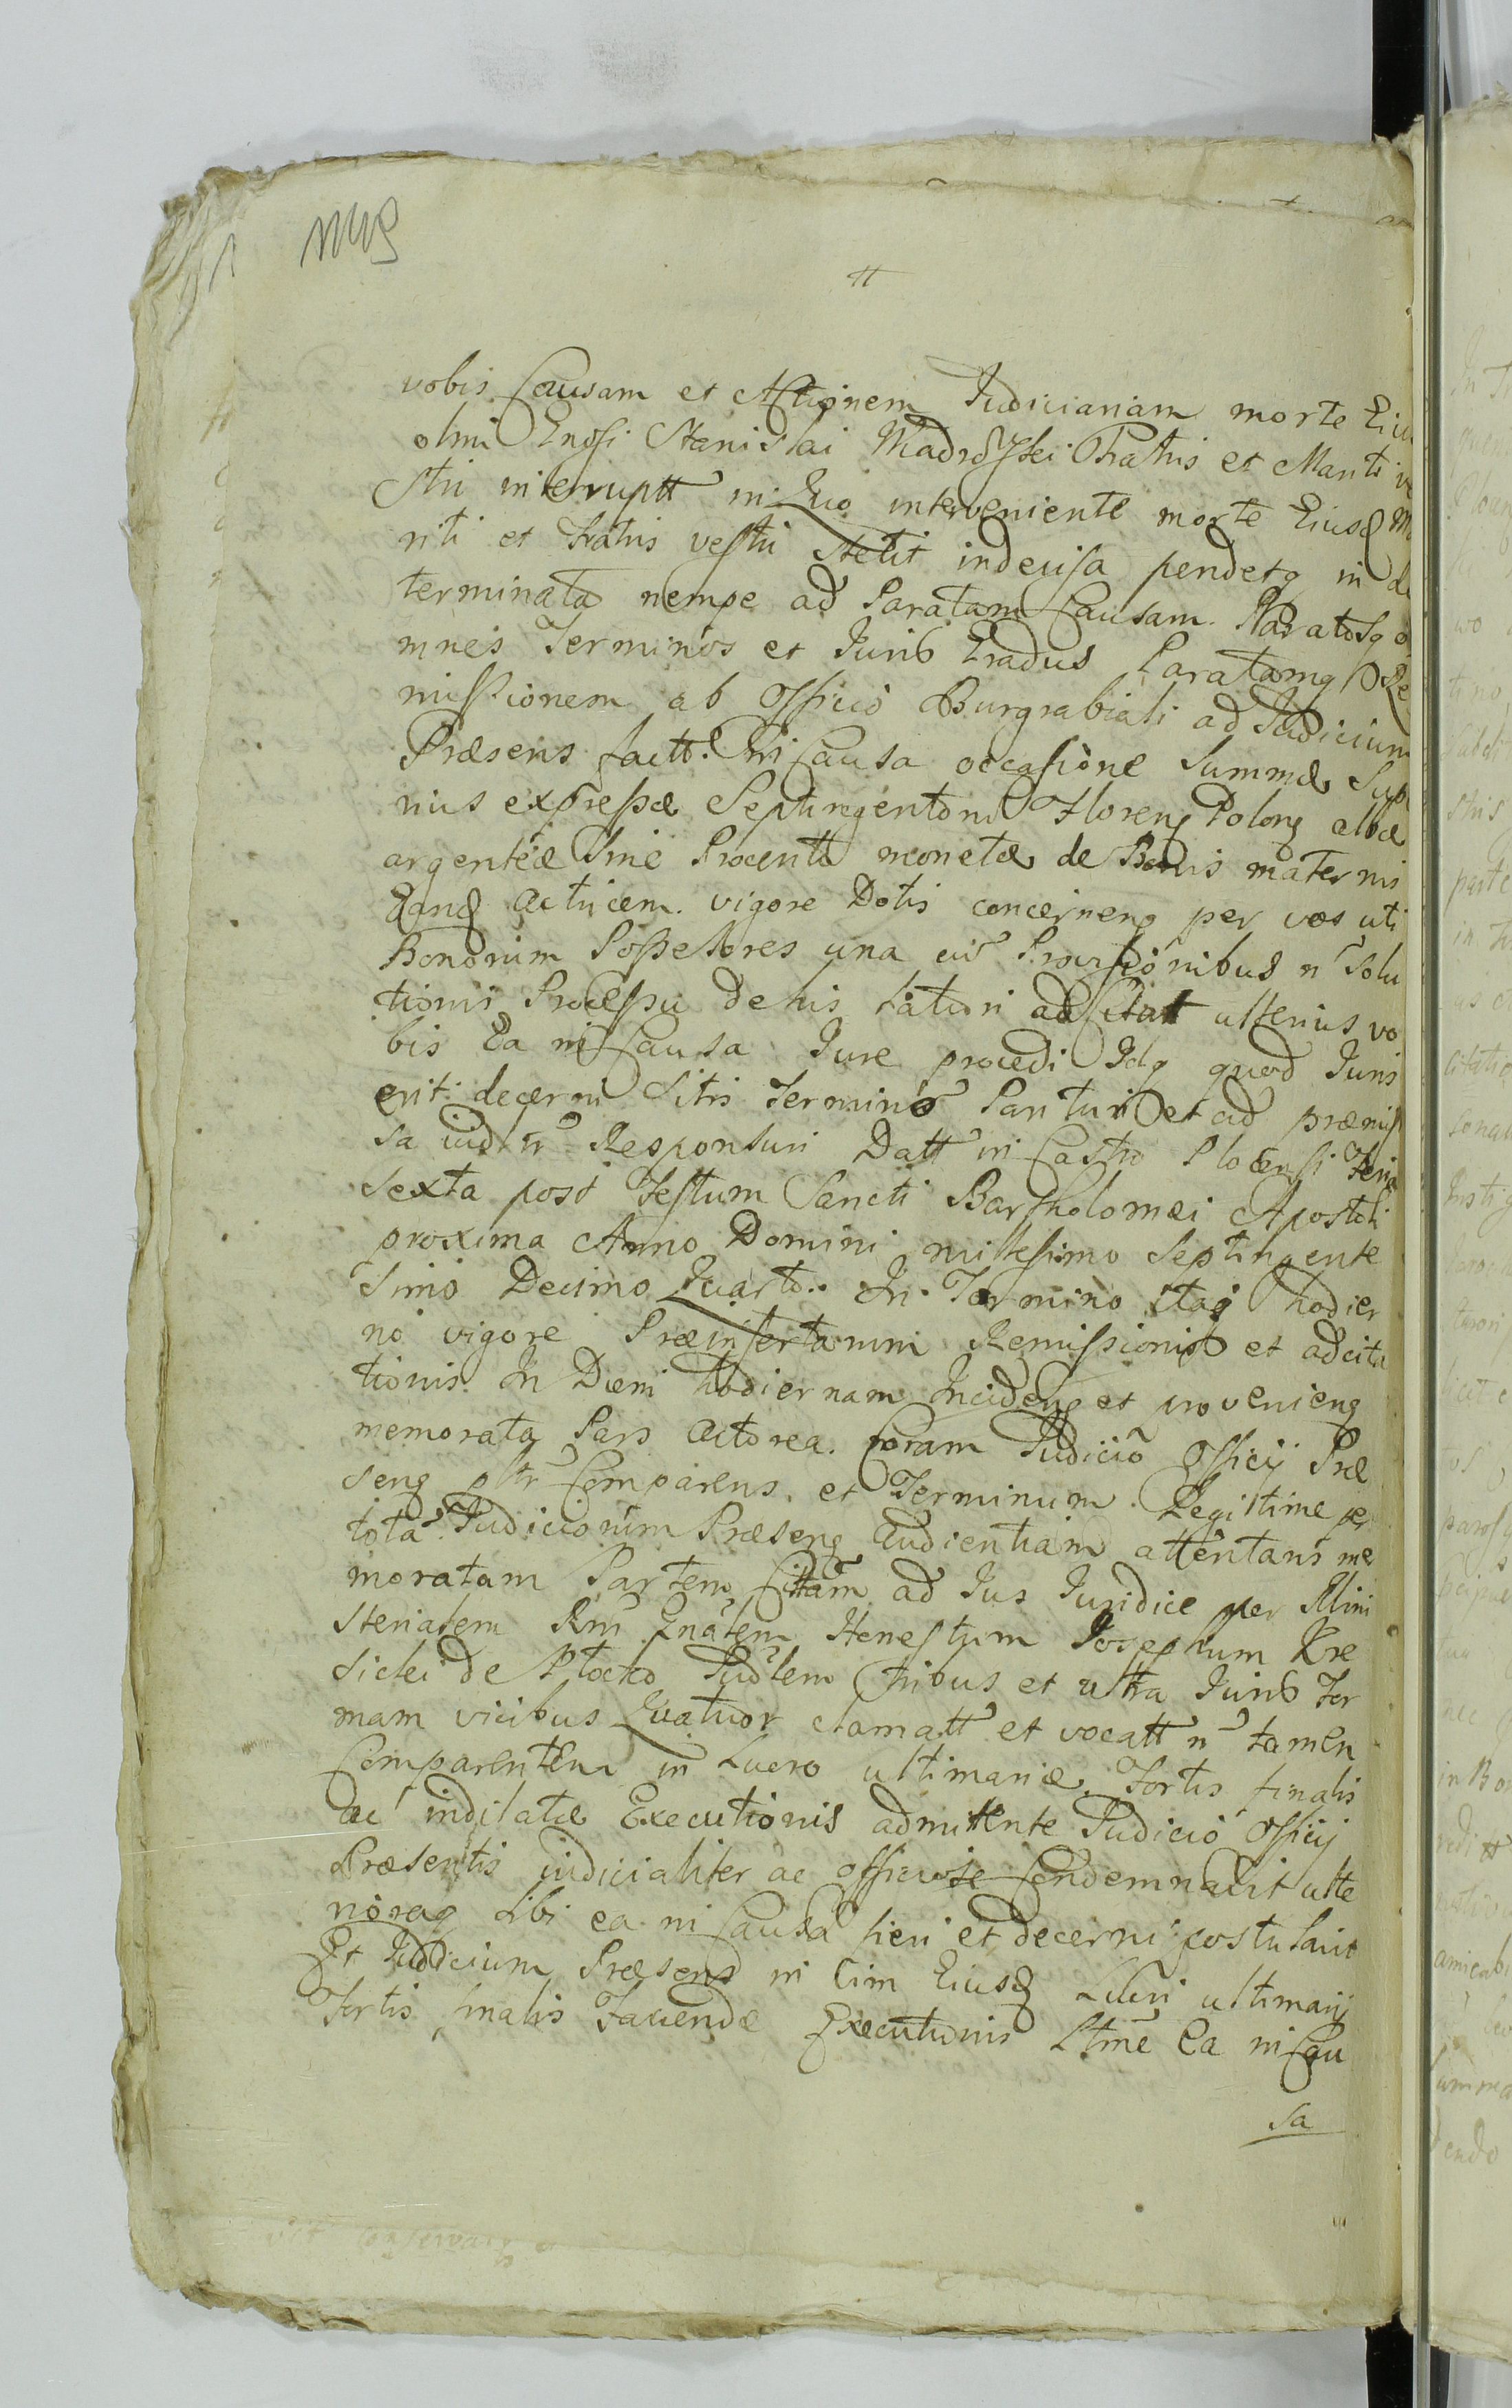 vobis Causam et Actionem Judiciariam morte Eiu
olim Gnosi Stanislai Mądrzyski Fratris et Mariti ve
stri interruptt in Quo interveniente morte Eiusq Ma
riti et Fratris vestri stetit indecisa pendetq in de
terminata nempe ad Paratam Causam Paratosq o
mnes Terminos et Jurib Gradus Paratamq Re
missionem ab Officio Burgrabiali ad Judicium
Præsens factt. in Causa occasione Summæ Supe
rius expressæ Septingentoru Floreng Polong albæ
argenteæ sine Procentt monetæ de Bonis maternis
Eandq Actricem vigore Dotis concerneng per vos uti
Bonorum Possessores una cu Provisionibus n solu
tionis Processu de his Laturi ad Citatt ulterius vo
bis Ea in Causa Jure procedi Idq quod Juris
erit decerni Sitis Termino Parituri et ad præmis
sa judtr Responsuri Datt in Castro Plocensi Feria
sexta post Festum Sancti Bartholomæi Apostoli
proxima Anno Domini millesimo Septingente
simo Decimo Quarto. In Termino Itaq hodier
no vigore Præinsertarum Remissionis et adcita
tionis In Diem hodiernam Incideng et proveniengq
memorata Pars Actorea coram Judicio Officij Præ
seng pltr Comparens et Terminum Legitime per
tota Judiciorum Præseng Audientiam attentans me
moratam Partem Citam ad Jus Juridice per Mini
sterialem Rni Gnalem Honestum Josephum Kre
sicki de Plocko Judlem tribus et ultra Jurib For
mam vicibus Quatuor clamatt et vocatt n tamen
Comparentem in Lucro ultimariæ Fortis finalis
ac indilatæ Executionis admittente Judicio Officij
Præsentis judicialiter ac officiose Condemnavit ulte
rioraq sibi ea in Causa fieri et decerni postulavit
Et Judicium Præsens in vim Eiusq Lucri ultimarij
Fortis finalis Faciendæ Executionis Ltme Ea in Cau
sa